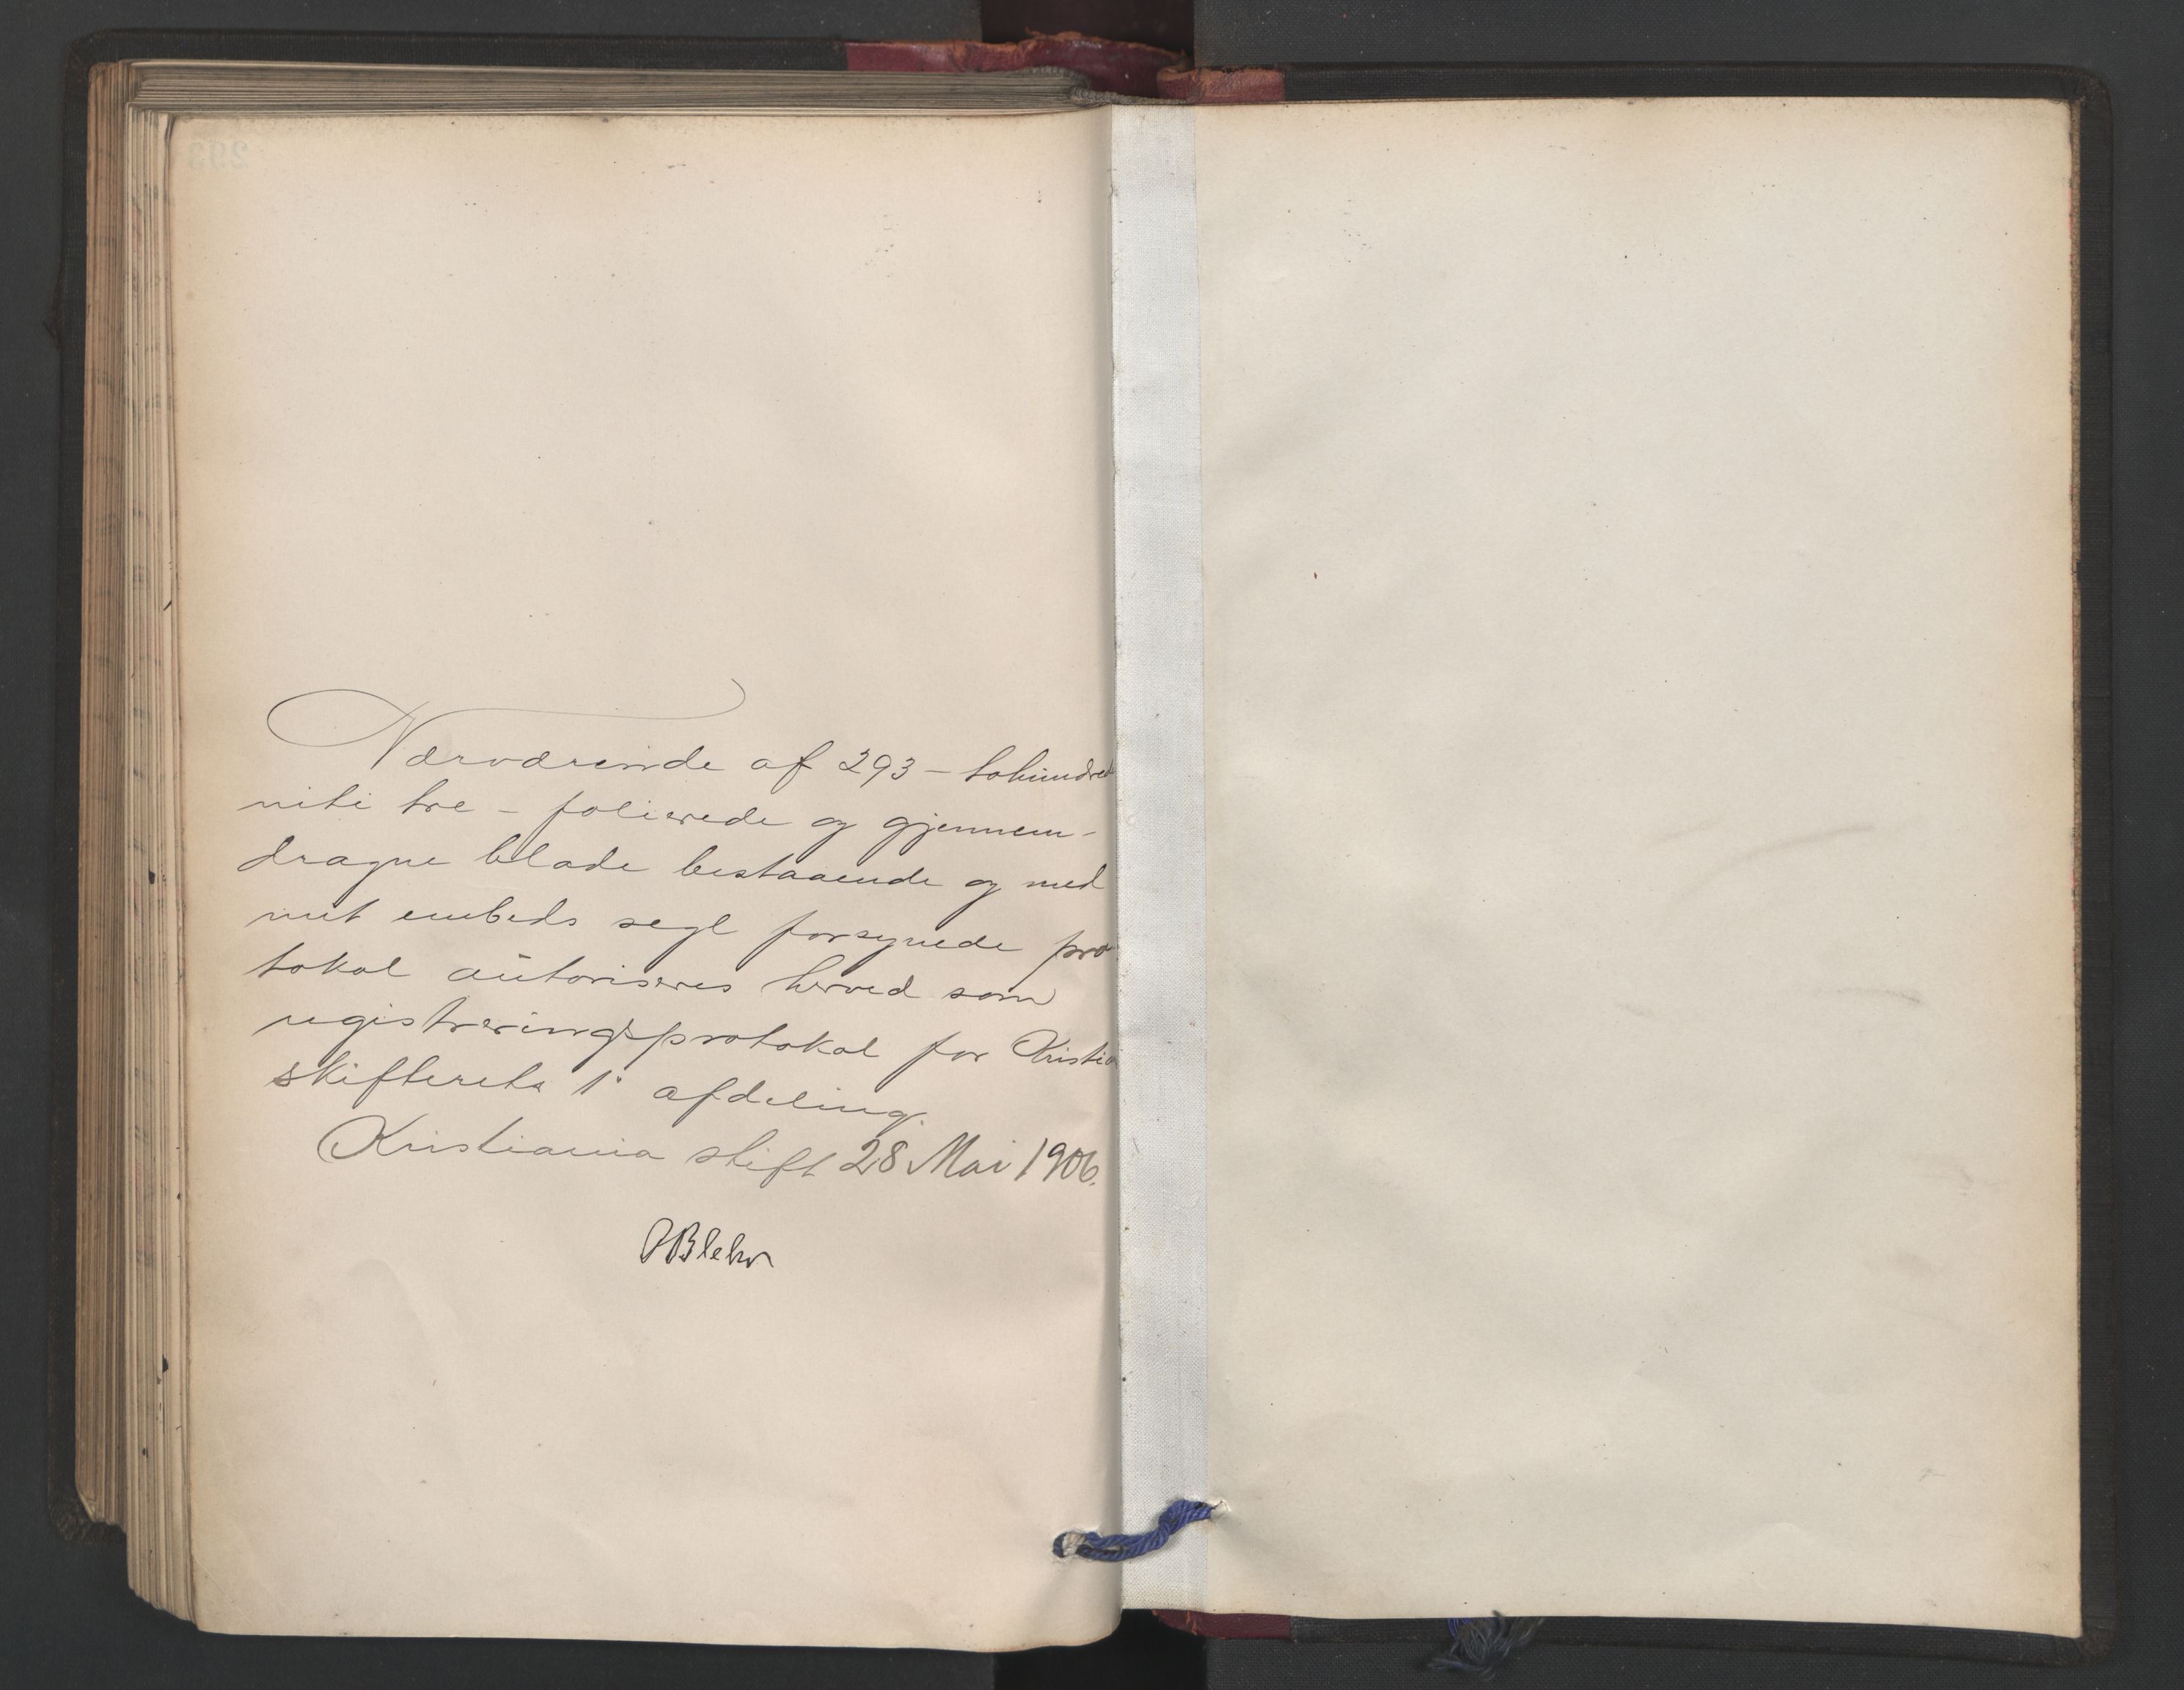 Nærværende af 293 – tohundred
niti tre – folierede og gjennem-
dragne blade bestaaende og med
mit embeds segl forsynede pro
tokol autoriseres herved som
registreringsprotokol for Kristia
skifterets 1' afdeling.
Kristiania stift 28 Mai 1906.
OBlehr
293